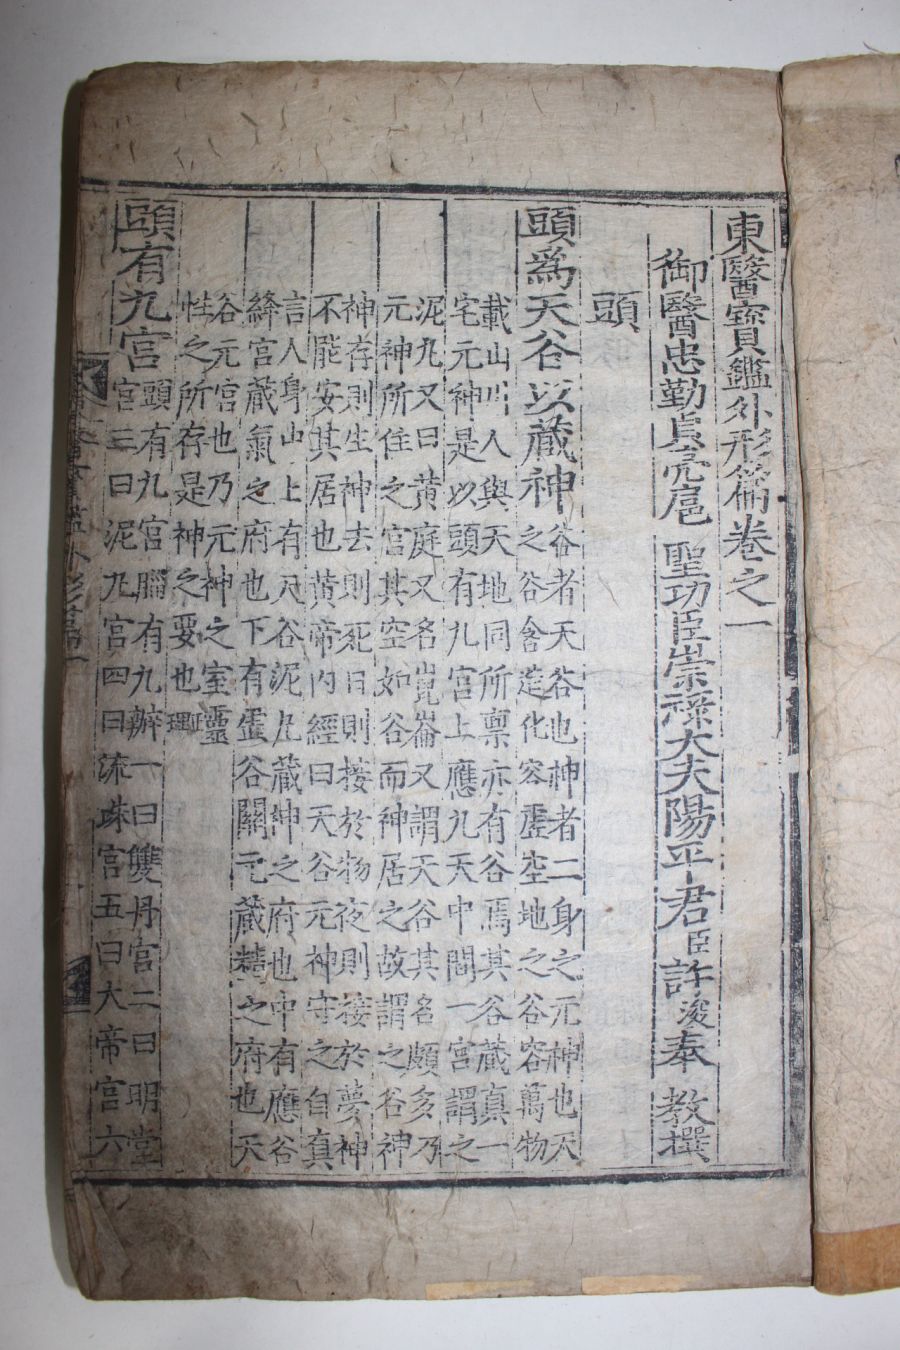 東醫寶鑑外形篇卷之一
御醫忠勤貞亮扈 聖功臣崇祿大夫陽平君臣許浚奉 教撰
頭
頭爲天谷以藏神
谷者天谷也神者一身之元神也天
之谷含造化容虛空地之谷容萬物
載山川人與天地同所稟亦有谷焉其谷藏眞一
宅元神是以頭有九宮上應九天中間一宮謂之
泥丸又曰黃庭又名崑崙又謂天谷其名頗多乃
元神所住之宮其空如谷而神居之故謂之谷神
神存則生神去則死日則接於物夜則接於夢神
不能安其居也黃帝內經曰天谷元神守之自眞
言人身中上有天谷泥丸藏神之府也中有應谷
絳宮藏氣之府也下有虛谷關元藏精之府也天
谷元宮也乃元神之室靈
性之所存是神之要也 正理
頭有九宮
頭有九宮腦有九瓣一曰雙丹宮二曰明堂
宮三曰泥丸宮四曰流珠宮五曰大帝宮六